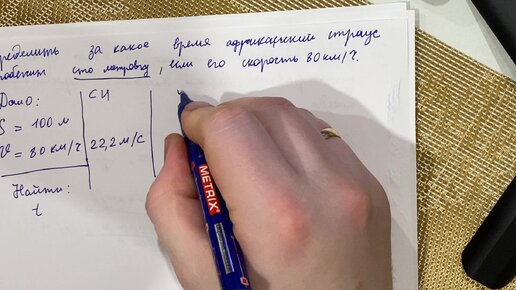 пределить за какое время африканский страус
робежит сто метровку, если его скорость 80 км/ч.
Дано:
S = 100 м
V = 80 км/ч
Найти:
t
СИ
22,2 м/с
METRIX